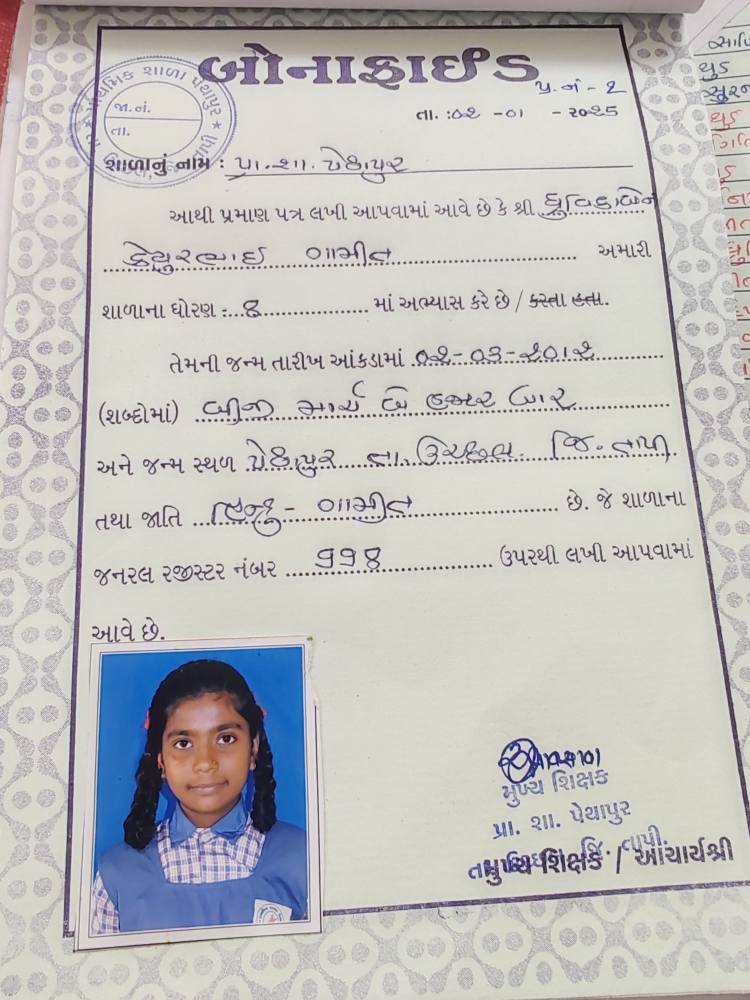 બોનાફાઈડ
પ્ર.નં - 2
પ્રાથમિક શાળા પેથાપુર
જા.નં.
તા.
તા. :૦૨ -૦૧ - ૨૦૨૫
શાળાનું નામ : પ્રા.શા. પેથાપુર
આથી પ્રમાણ પત્ર લખી આપવામાં આવે છે કે શ્રી ધ્રુવિકાબેન
કેયુરભાઈ ગામીત અમારી
શાળાના ધોરણ :- ૭ માં અભ્યાસ કરે છે / કરતા હતા.
તેમની જન્મ તારીખ આંકડામાં ૦૨-૦૩-૨૦૧૨
(શબ્દોમાં) બીજી માર્ચ બે હજાર બાર
અને જન્મ સ્થળ પેથાપુર તા. ઉચ્છલ. જિ. તાપી.
તથા જાતિ હિન્દુ - ગામીત છે. જે શાળાના
જનરલ રજીસ્ટર નંબર ૧૧૪ ઉપરથી લખી આપવામાં
આવે છે.
મુખ્ય શિક્ષક
પ્રા. શા. પેથાપુર
જિ. તાપી.
મુખ્ય શિક્ષક / આચાર્યશ્રી